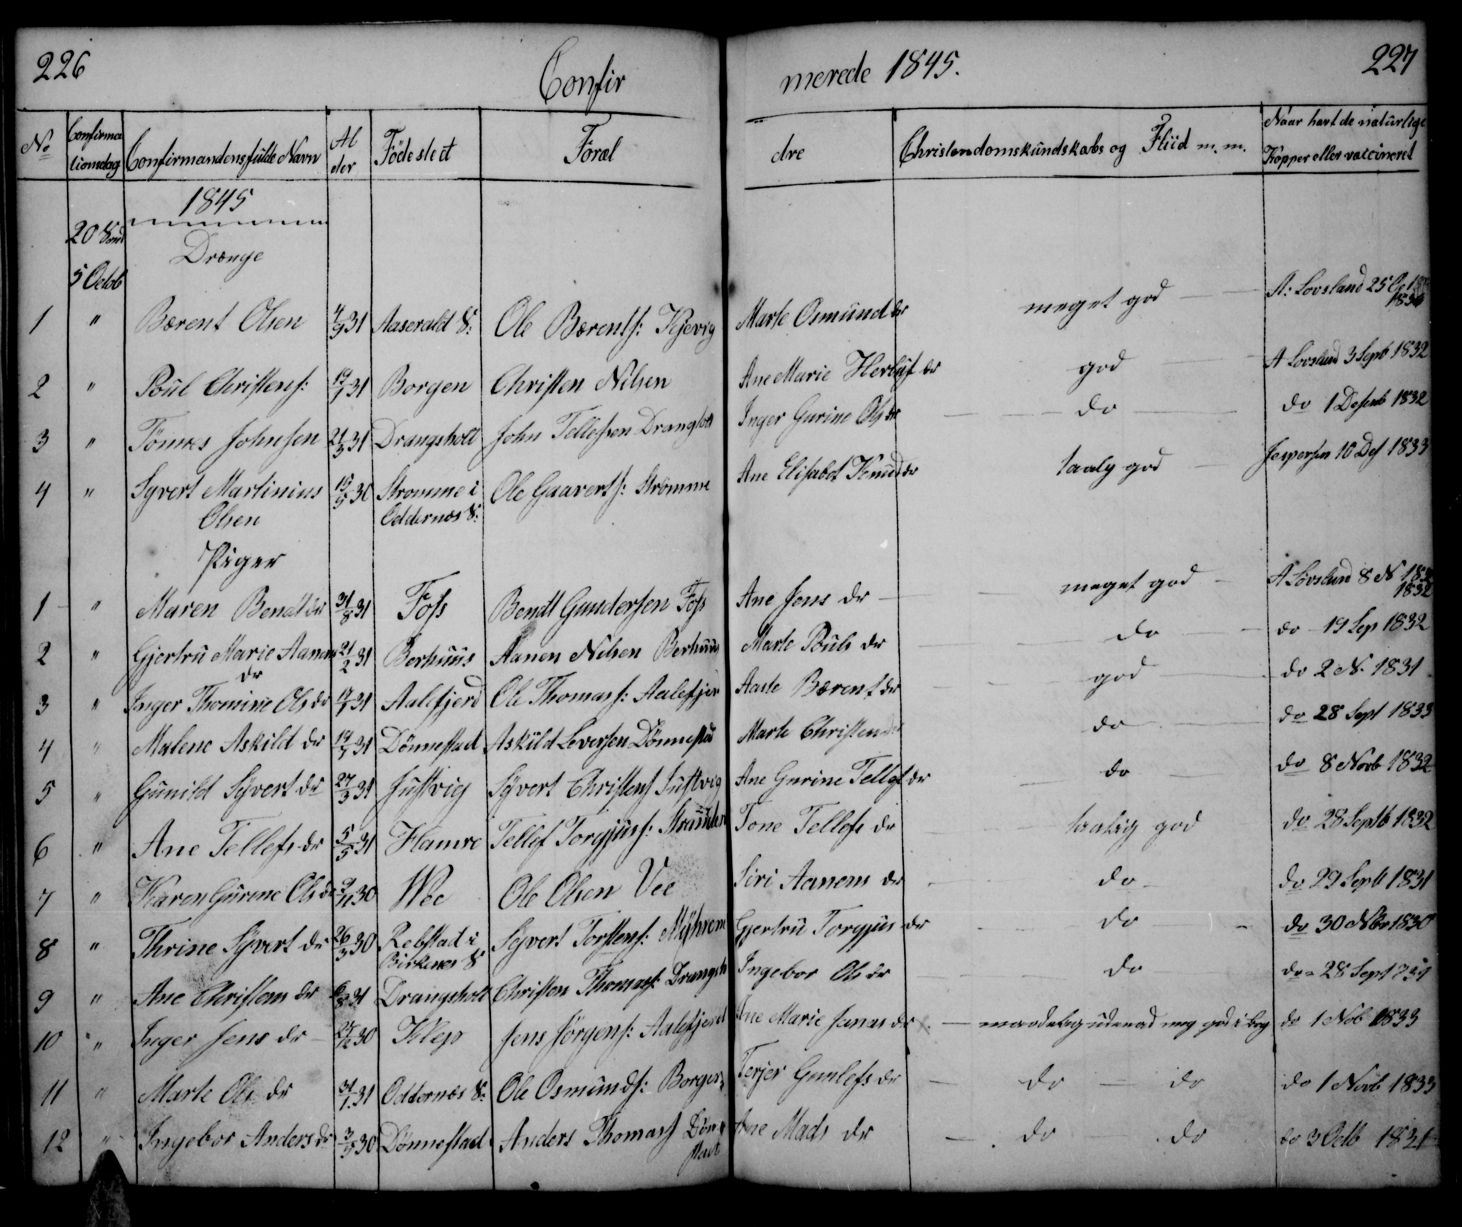 226 Confir merede 1845. 227
No Confirma tionsdag Confirmandens fulde Navn Al der Födested Foræl dre Christendomskundskabs og Fliid m.m. Naar havt de naturlige Kopper eller vaccineret
1845
20 Sönd
Drenge
5 Octob
1 " Bærent Olsen 31 Aaseral S: Ole Bærents: Kjevig Marte Osmund dr meget god A: Lovsland 25
2 " Poul Christens: 31 Borgen Christen Nilsen Ane Marie Herluf dr god A Lovsland 3 Septb 1832
3 " Tomes Johnsen 31 Drangsholt John Tellefsen Drangsholt Inger Gurine Ols dr do do 1 Desemb 1832
4 " Syvert Martinius 15/5 31 Strømme i Ole Gaaverts: Strömme Ane Elisabet Knud dr taalig god Jespersen 10 Des 1833
Olsen Oddernæs S:
Piger
1 " Maren Bendt dr 31/8 31 Foss Bendt Gundersen Foss Ane Jens dr meget god A Lovsland 8 N 1832
2 " Gjertru Marie Aanen 21/2 31 Berhuus Aanen Nilsen Berhuus Marte Pouls dr do do 19 Sep 1832
dr
3 " Inger Thomine Ols dr 31 Aalefjerd Ole Thomas: Aalefjer Aaste Bærent dr god do 2 N. 1831
4 " Malene Askild dr 31 Dönnestad Askild Leversen Dönnestad Marte Christen dr do do 28 Sept 1833
5 " Gunild Syvert dr 27/3 31 Justvig Syvert Christens Justvig Ane Gurine Tellef dr do do 8 Novb 1832
6 " Ane Tellefs dr 5/5 31 Hamre Tellef Torgjus: Tone Tellefs dr taalig god do 28 Septb 1832
7 " Karen Gurine Ols dr 30 Wee Ole Olsen Vee Siri Aanens dr do do 29 Septb 1831
8 " Thrine Syvert dr 26/3 30 Rebstad i Syvert Torstens: Myhren Gjertru Torgjus dr do do 30 Nbr 1830
Birkenes S
9 " Ane Christens dr 31 Drangsholt Christen Thomas: Drangsh Ingebor Ols dr do do 28 Sept
10 " Inger Jens dr 30 Klep Jens Jörgens: Aalefjerd Ane Marie Jonas dr maadelig udenad meg god i bog do 1 Nob 1833
11 " Marte Ols dr 31/1 31 Oddernæs S: Ole Osmunds: Borgen Terjer Gunlefs dr do do do 1 Novb 1833
12 " Ingebor Anders dr 30 Dönnestad Anders Thomas Dön stad Ane Mads dr do do do 3 Octb 1831